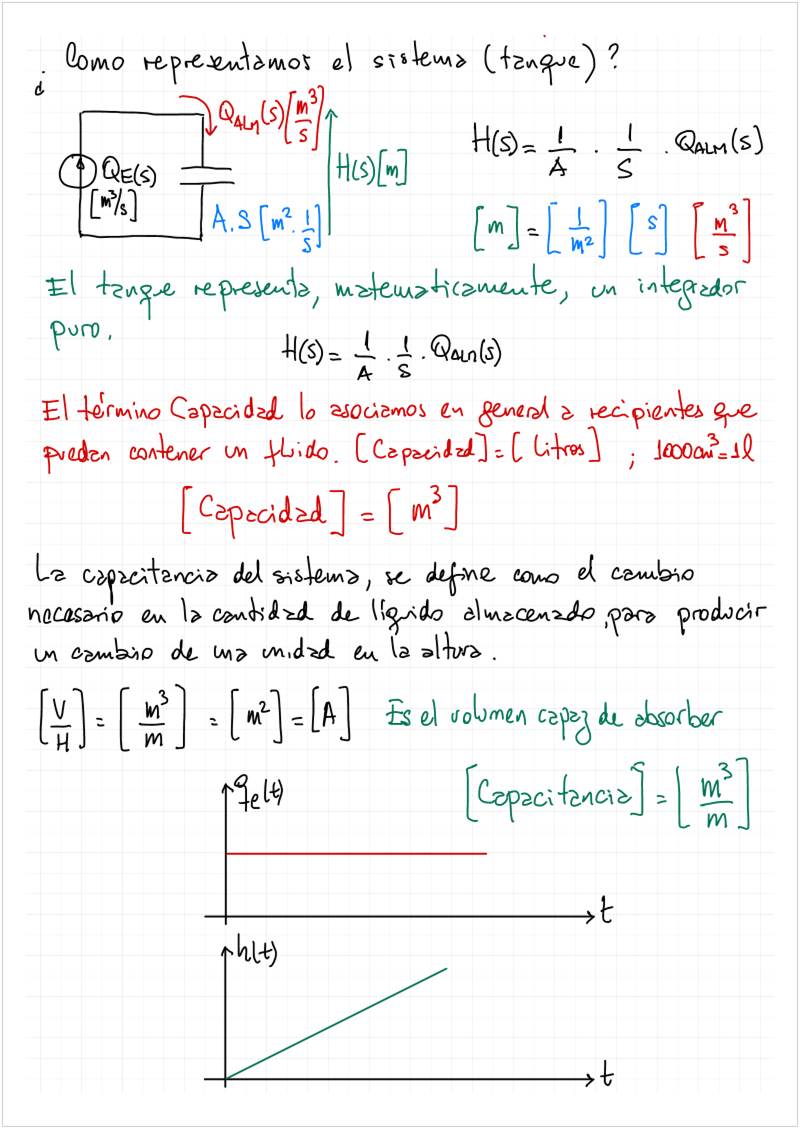 ¿Como representamos el sistema (tanque)?
Q_ALM(s) [m³/s]
Q_E(s)
[m³/s]
H(s) [m]
A.S [m². 1/s]
H(s) = 1/A . 1/S . Q_ALM(s)
[m] = [1/m²] [s] [m³/s]
El tanque representa, matematicamente, un integrador
puro.
H(s) = 1/A . 1/S . Q_ALM(s)
El término Capacidad lo asociamos en general a recipientes que
puedan contener un fluido. [Capacidad] = [Litros] ; 1000cm³=1l
[Capacidad] = [m³]
La capacitancia del sistema, se define como el cambio
necesario en la cantidad de líquido almacenado, para producir
un cambio de una unidad en la altura.
[V/H] = [m³/m] = [m²] = [A] Es el volumen capaz de absorber
[Capacitancia] = [m³/m]
q_e(t)
t
h(t)
t